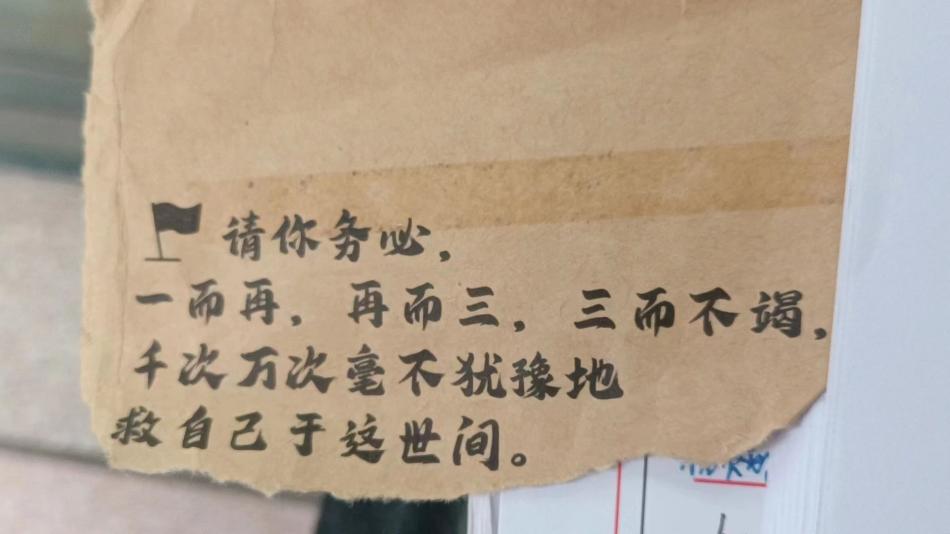 请你务必，
一而再，再而三，三而不竭，
千次万次毫不犹豫地
救自己于这世间。